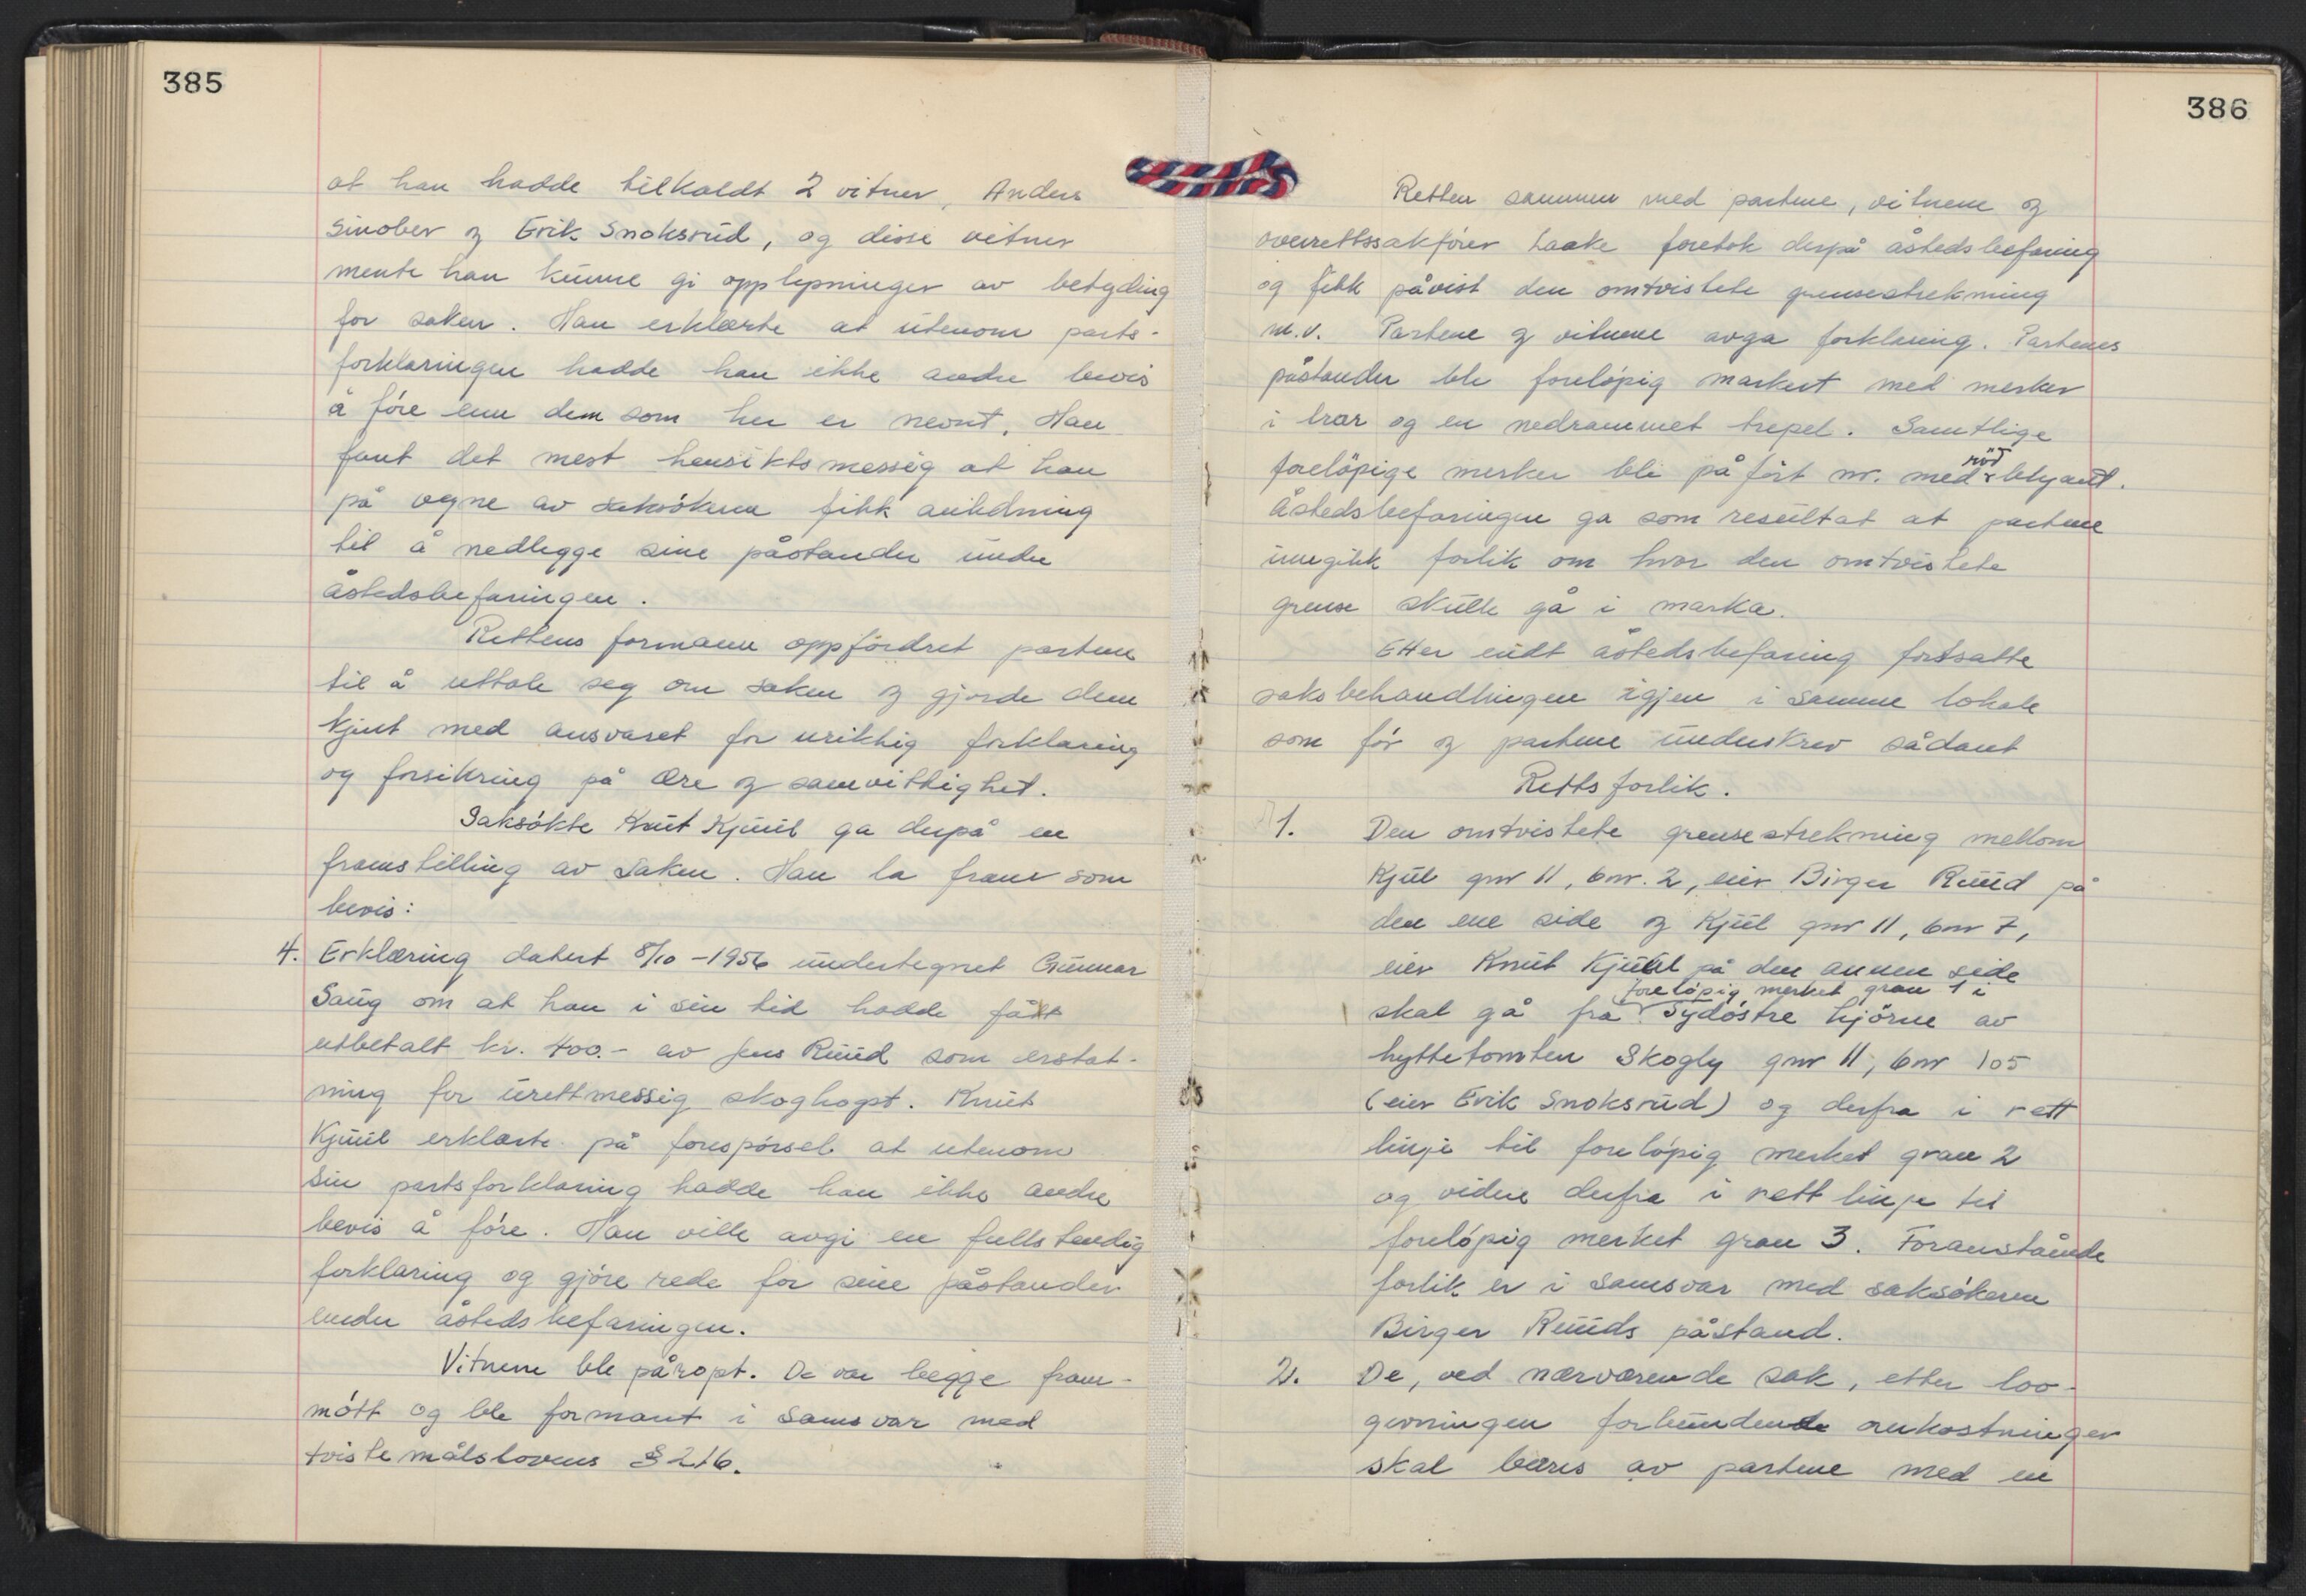 385
at han hadde tilkaldt 2 vitner, Anders
Sinober og Erik Snoksrud, og disse vitner
mente han kunne gi opplysninger av betyding
for saken. Han erklærte at utenom parts-
forklaringen hadde han ikke andre bevis
å føre enn dem som her er nevnt. Han
fant det mest hensiktsmessig at han
på vegne av saksøkeren fikk anledning
til å nedlegge sine påstander under
åstedsbefaringen.
Rettens formann oppfordret partene
til å uttale seg om saken og gjorde dem
kjent med ansvaret for uriktig forklaring
og forsikring på ære og samvittighet.
Saksøkte Knut Kjuul ga derpå en
framstilling av saken. Han la fram som
bevis:
4. Erklæring datert 8/10-1956 undertegnet Gunnar
Saug om at han i sin tid hadde fått
utbetalt kr. 400.- av Jens Ruud som erstat-
ning for urettmessig skoghogst. Knut
Kjuul erklærte på forespørsel at utenom
sin partsforklaring hadde han ikke andre
bevis å føre. Han ville avgi en fullstendig
forklaring og gjøre rede for sine påstander
under åstedsbefaringen.
Vitnene ble påropt. De var begge fram-
møtt og ble formant i samsvar med
tvistemålslovens § 216.
386
Retten sammen med partene, vitnene og
overrettssakfører Laake foretok derpå åstedsbefaring
og fikk påvist den omtvistete grensestrekning
m.v. Partene og vitnene avga forklaring. Partenes
påstander ble foreløpig markert med merker
i trær og en nedrammet trepel. Samtlige
rød
foreløpige merker ble påført nr. med blyant.
Åstedsbefaringen ga som resultat at partene
inngikk forlik om hvor den omtvistete
grense skulle gå i marka.
Etter endt åstedsbefaring fortsatte
saksbehandlingen igjen i samme lokale
som før og partene underskrev sådant
Rettsforlik.
1. Den omtvistete grensestrekning mellom
Kjul gnr 11, bnr. 2, eier Birger Ruud på
den ene side og Kjul gnr 11, bnr 7,
eier Knut Kjuul på den annen side
foreløpig merket gran 1 i
skal gå fra sydøstre hjørne av
hyttetomten Skogly gnr 11, bnr 105
(eier Erik Snoksrud) og derfra i rett
linje til foreløpig merket gran 2
og videre derfra i rett linje til
foreløpig merket gran 3. Foranstående
forlik er i samsvar med saksøkeren
Birger Ruuds påstand.
2. De, ved nærværende sak, etter lov-
givningen forbundende omkostninger
skal bæres av partene med en